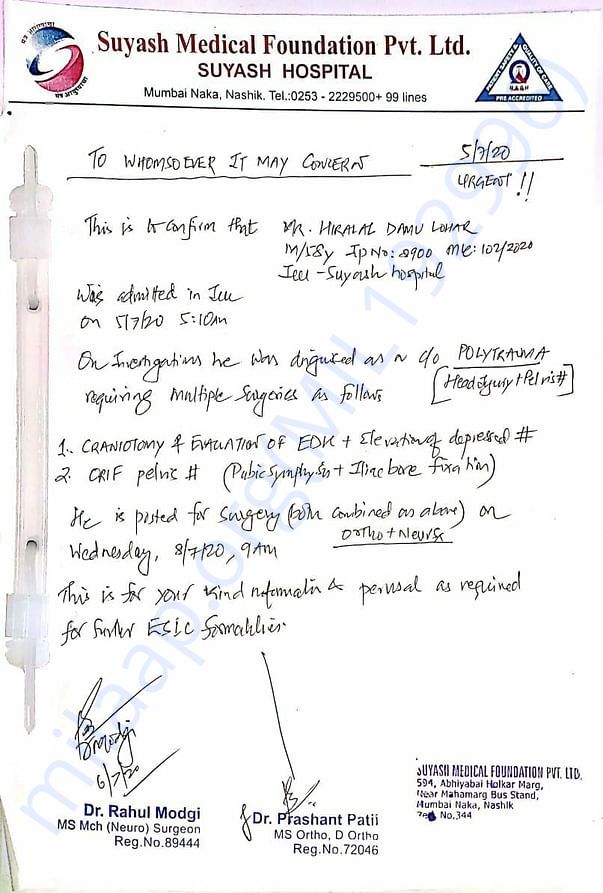 Suyash Medical Foundation Pvt. Ltd.
SUYASH HOSPITAL
Mumbai Naka, Nashik. Tel.:0253 - 2229500+ 99 lines
PATIENT SAFETY & QUALITY OF CARE
N.A.B.H
PRE ACCREDITED
5/7/20
TO WHOMSOEVER IT MAY CONCERN
URGENT!!
This is to confirm that MR. HIRALAL DAMU LOHAR
M/58y Ip No: 8900 102/2020
Icu - Suyash hospital
Was admitted in Icu
on 5/7/20 5:10am
On Investigations he was c/o POLYTRAUMA
[Head injury + Pelvis #]
requiring Multiple Surgeries as follows
1. CRANIOTOMY & EVALUATION OF EDH + Elevation of depressed #
2. ORIF pelvic # (Pubic Symphysis + Iliac bone fixation)
He is posted for Surgery (both combined as above) on
Ortho + Neuro
Wednesday, 8/7/20, 9AM
This is for your kind information & perusal as required
for further ESIC formalities.
6/7/20
Dr. Rahul Modgi
MS Mch (Neuro) Surgeon
Reg.No.89444
Dr. Prashant Patil
MS Ortho, D Ortho
Reg.No.72046
SUYASH MEDICAL FOUNDATION PVT. LTD.
594, Abhiyabai Holkar Marg,
Near Mahamarg Bus Stand,
Mumbai Naka, Nashik
No.344
milaap.org(MIL192996)